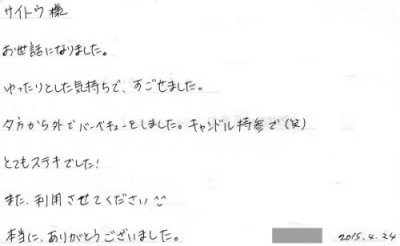 サイトウ 様
お世話になりました。
ゆったりとした気持ちで、すごせました。
夕方から外でバーベキューをしました。キャンドル持参で(笑)
とてもステキでした!
また、利用させてください
本当に、ありがとうございました。 2015.4.24